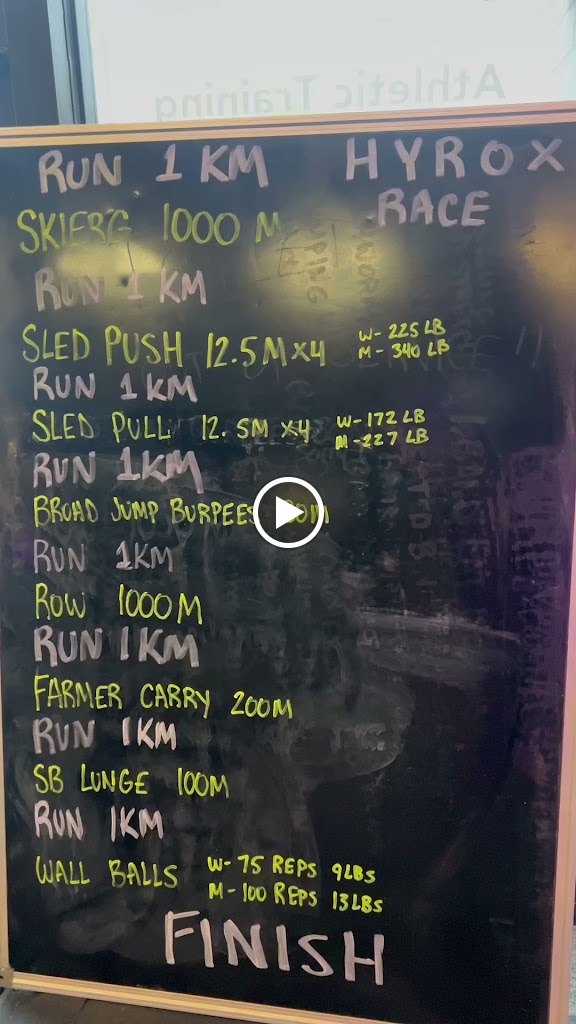 Athletic Training
RUN 1 KM
HYROX
RACE
SKIERG 1000 M
RUN 1 KM
SLED PUSH 12.5M x4
W- 225 LB
M- 340 LB
RUN 1 KM
SLED PULL 12.5M x4
W-172 LB
M-227 LB
RUN 1KM
BROAD JUMP BURPEES
RUN 1KM
ROW 1000M
RUN 1KM
FARMER CARRY 200M
RUN 1KM
SB LUNGE 100M
RUN 1KM
WALL BALLS
W- 75 REPS 9LBs
M- 100 REPS 13LBs
FINISH